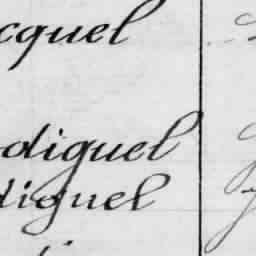 cquel
diguel
diguel